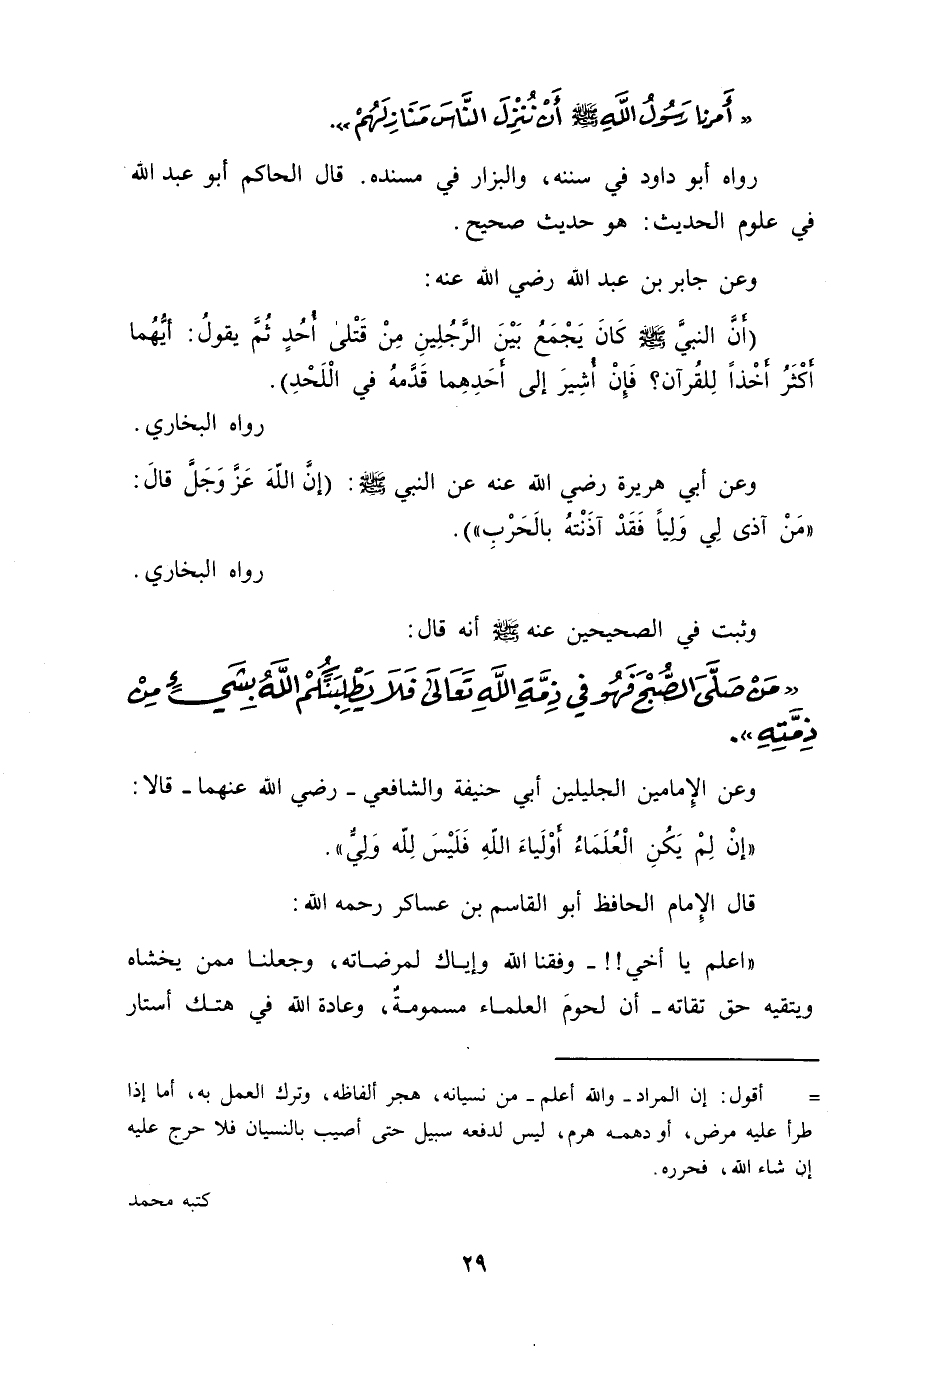 « أَمرنا رَسُولُ اللَّهِ ﷺ أَنْ نُنْزِلَ النَّاسَ مَنَازِلَهُمْ ».
رواه أبو داود في سننه، والبزار في مسنده. قال الحاكم أبو عبد الله
في علوم الحديث: هو حديث صحيح.
وعن جابر بن عبد الله رضي الله عنه:
(أَنَّ النبيَّ ﷺ كَانَ يَجْمَعُ بَيْنَ الرَّجُلينِ مِنْ قَتْلىٰ أُحُدٍ ثُمَّ يقولُ: أيُّهُما
أَكْثَرُ أَخْذاً لِلقُرآن؟ فَإِنْ أُشِيرَ إلى أَحَدِهِما قَدَّمهُ في الْلَحْدِ).
رواه البخاري.
وعن أبي هريرة رضي الله عنه عن النبي ﷺ: (إنَّ اللّهَ عَزَّ وَجَلَّ قالَ:
«مَنْ آذى لِي وَلِياً فَقَدْ آذَنْتهُ بالَحَرْبِ»).
رواه البخاري.
وثبت في الصحيحين عنه ﷺ أنه قال:
« مَنْ صَلَّىَ الصُّبْحَ فَهُو في ذِمَّةِ اللَّهِ تَعَالَىٰ فَلَا يَطْلِبَنَّكُمْ اللَّهُ بِشَيءٍ مِنْ
ذِمَّتِهِ ».
وعن الإمامين الجليلين أبي حنيفة والشافعي - رضي الله عنهما - قالا:
«إنْ لِمْ يَكُنِ الْعُلَمَاءُ أَوْلَياءَ اللّهِ فَلَيْسَ لِلّه وَلِيٌّ».
قال الإمام الحافظ أبو القاسم بن عساكر رحمه الله:
«اعلم يا أخي!! - وفقنا الله وإياك لمرضاته، وجعلنا ممن يخشاه
ويتقيه حق تقاته - أن لحومَ العلماء مسمومةٌ، وعادة الله في هتك أستار
= أقول: إن المراد - والله أعلم - من نسيانه، هجر ألفاظه، وترك العمل به، أما إذا
طرأ عليه مرض، أو دهمه هرم، ليس لدفعه سبيل حتى أصيب بالنسيان فلا حرج عليه
إن شاء الله، فحرره.
كتبه محمد
٢٩